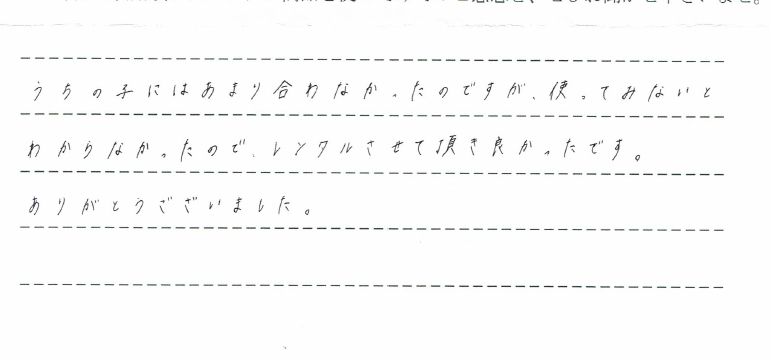 うちの子にはあまり合わなかったのですが、使ってみないと
わからなかったので、レンタルさせて頂き良かったです。
ありがとうございました。